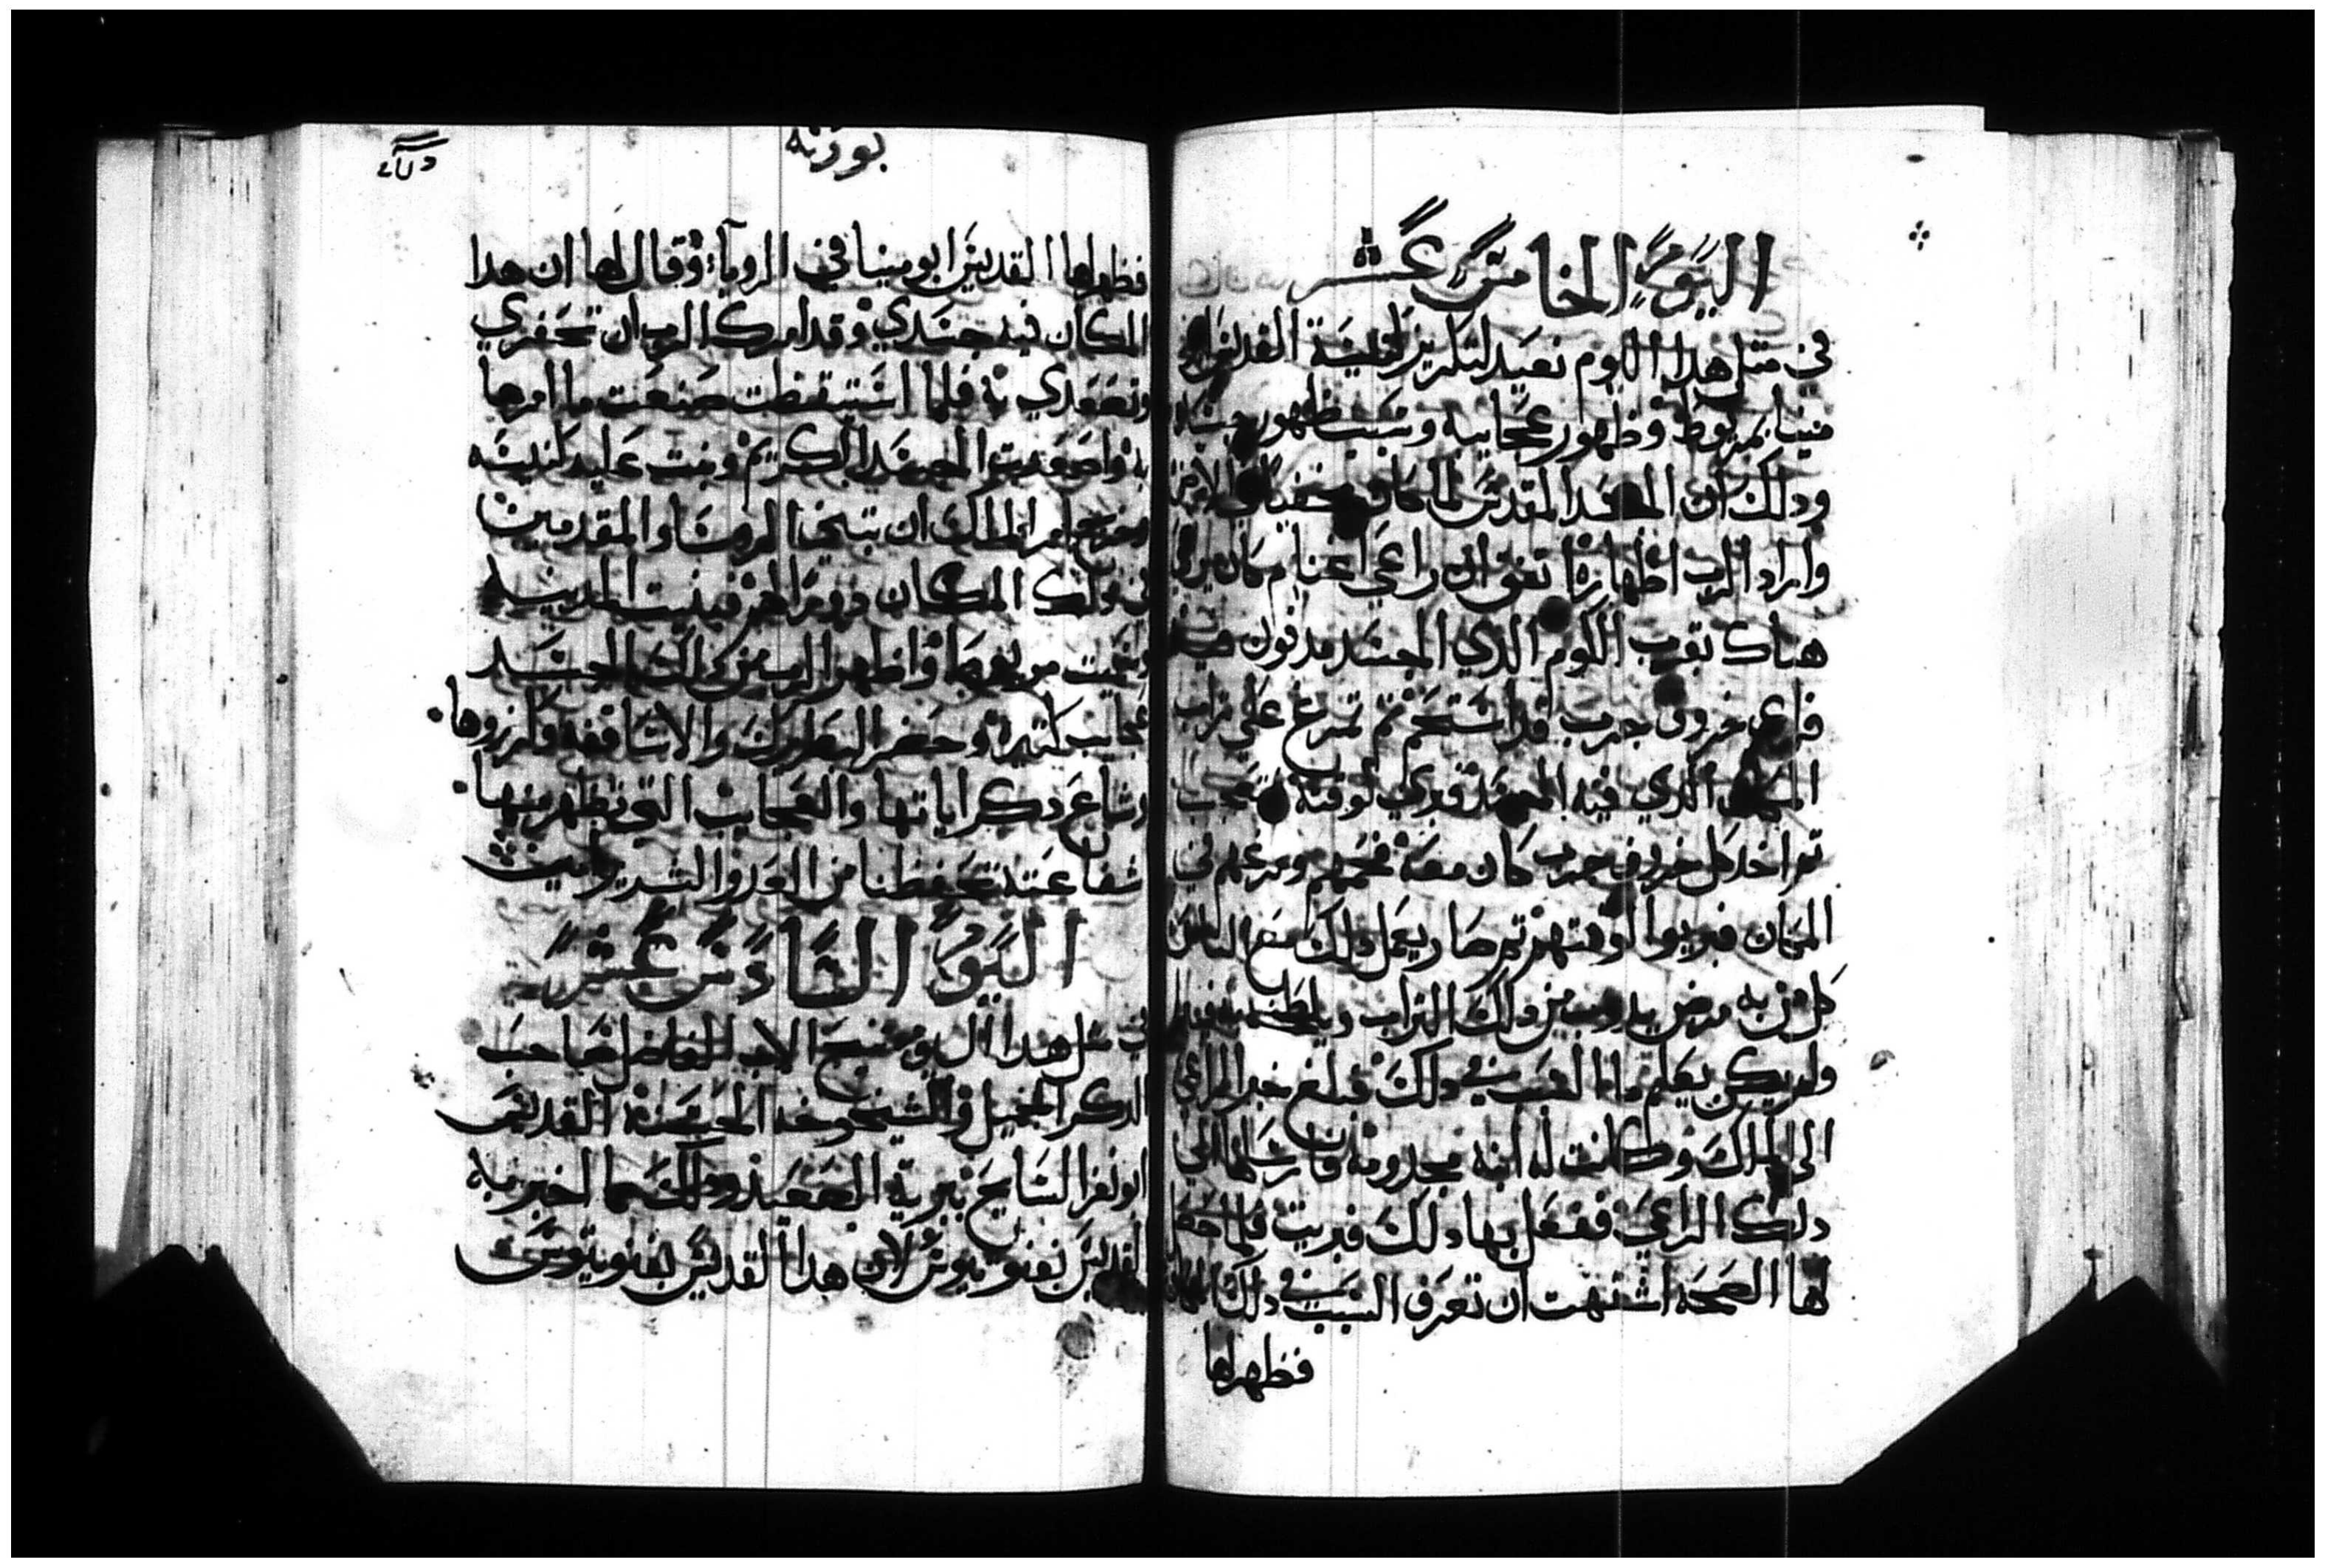 اليوم الخامس عشر
في مثل هدا اليوم نعيد لتكريز كنيسة القديس ابو
مينا بمريوط وظهور عجايبه وسبب ظهور جسده
ودلك ان الجسد المقدس لما كان مخفيا في الارض
واراد الرب اظهاره اتفق ان راعي اغنام كان يرعي
هناك بقرب الكوم الدي الجسد مدفون فيه
خروف جرب قد استحم تم تمرغ علي تراب
المكان الدي فيه الجسد فبري لوقته فتعجب
تم اخد كل خروف جرب كان معه فحمهم ومرغهم في
المكان فبريوا لوقتهم تم صار يعمل دلك مع الناس
كل من به مرض يدوب من دلك التراب ويلطخه به فيبرا
ولم يكن يعلم ما السبب في دلك فبلغ خبر الراعي
الي الملك وكانت له ابنه مجدومه فارسلها الي
دلك الراعي ففعل بها دلك فبريت فلما حصل
لها الصحه اشتهت ان تعرف السبب في دلك
فظهر لها
بوونه
فظهر لها القديس ابو مينا في الرويا وقال لها ان هدا
المكان فيه جسدي وقد امرك الرب ان تحفري
وتصعدي به فلما استيقظت صنعت ما امرها
به واصعدت الجسد الكريم وبنت عليه كنيسه
وخرج امر الملك ان تبنا الروسا والمقدمين
في دلك المكان دورا لهم فبنيت المدينه
وسميت مريوط واظهر الرب من دلك الجسد
عجايب كتيره وحضر البطريرك والاساقفه وكرزوها
وشاع دكر اياتها والعجايب التي تظهر منها
شفاعته تحفظنا من العدو الشرير امين
اليوم السادس عشر
في مثل هدا اليوم تنيح الاب الفاضل صاحب
الدكر الجميل والشيخوخه الحسنه القديس
ابو نفر السايح ببرية الصعيد ودلك كما اخبر به
القديس بفنوتيوس لان هدا القديس بفنوتيوس